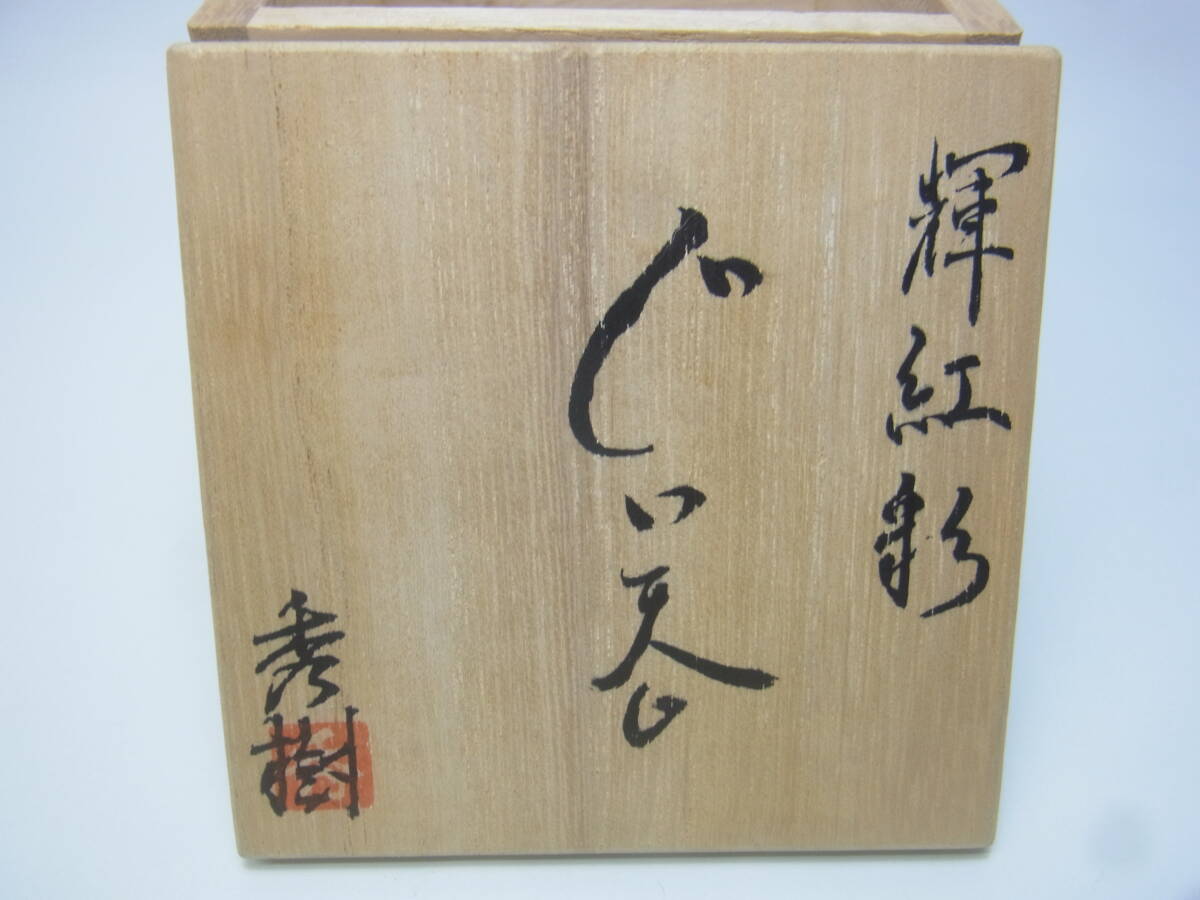 輝紅彩
ぐい呑
秀樹